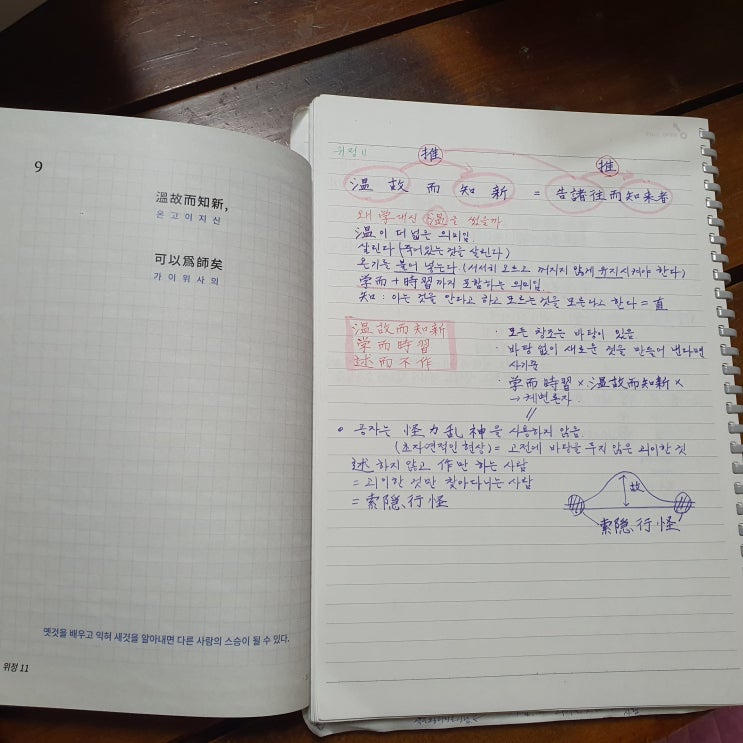 9
溫故而知新,
온고이지신
可以爲師矣
가이위사의
옛것을 배우고 익혀 새것을 알아내면 다른 사람의 스승이 될 수 있다.
위정 11
위정 11
推 推
温 故 而 知 新 = 告諸往而知来者
왜 学 대신 温을 썼을까
温이 더 넓은 의미임.
살린다 (죽어있는 것을 살린다)
온기를 불어 넣는다 (서서히 오르고 꺼지지 않게 유지시켜야 한다)
学而 + 時習까지 포함하는 의미임
知 : 아는 것을 안다고 하고 모르는 것을 모른다고 한다 = 直
温故而知新
学而時習
述而不作
· 모든 창조는 바탕이 있음
· 바탕 없이 새로운 것을 만들어 낸다면
사기꾼
· 学而時習 × 温故而知新 ×
→
공자는 怪力乱神을 사용하지 않음.
(초자연적인 현상) = 고전에 바탕을 두지 않은 괴이한 것
述하지 않고 作만 하는 사람
= 괴이한 것만 찾아다니는 사람
= 索隐、行怪
故
索隐、行怪